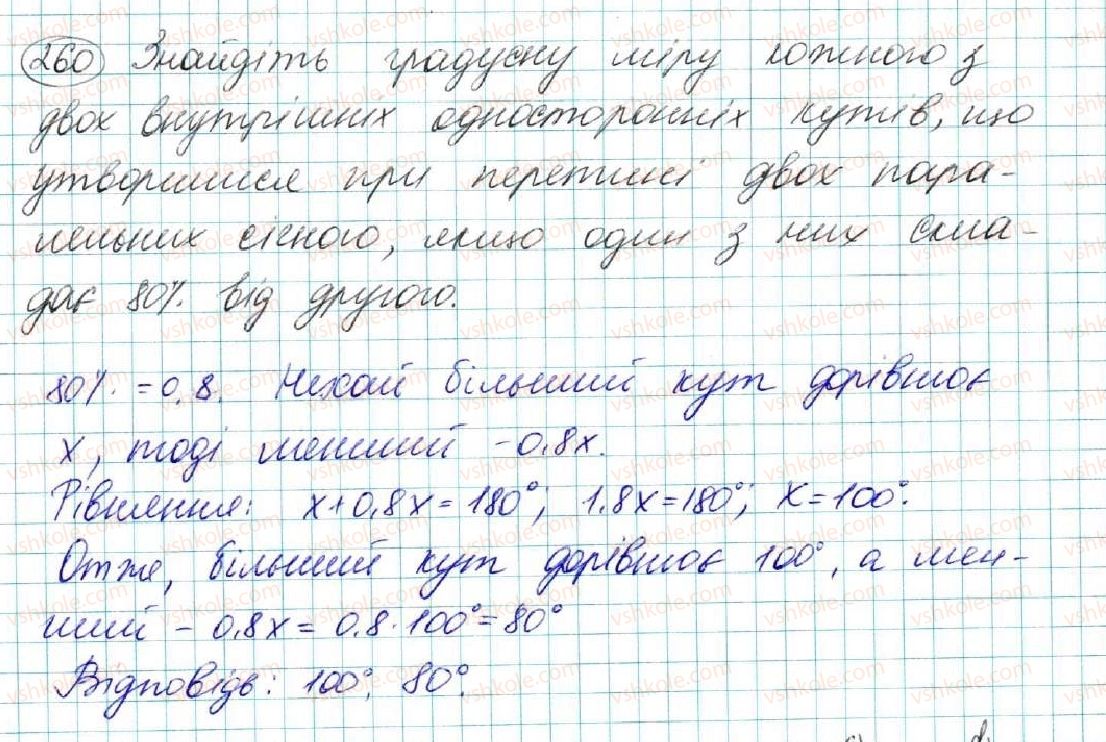 260 Знайдіть градусну міру кожного з
двох внутрішніх односторонніх кутів, що
утворилися при перетині двох пара-
лельних січною, якщо один з них скла-
дає 80% від другого.
80% = 0,8. Нехай більший кут дорівнює
х, тоді менший - 0,8х.
Рівняння: х+0,8х=180°; 1,8х=180°; х=100°.
Отже, більший кут дорівнює 100°, а мен-
ший - 0,8х = 0,8·100°=80°
Відповідь: 100°, 80°.